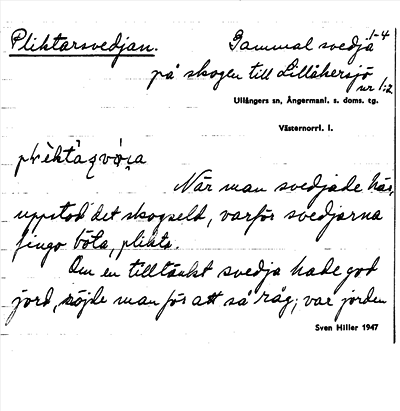 Pliktarsvedjan. Gammal svedja 1-4
på skogen till Lillåkersjö
nr 1:2
Ullångers sn, Ångermanl. s. doms. tg.
Västernorrl. l.
När man svedjade här,
uppstod det skogseld, varför svedjarna
fingo böta, plikta.
Om en tilltänkt svedja hade god
jord, röjde man för att så råg; var jorden
Sven Hiller 1947